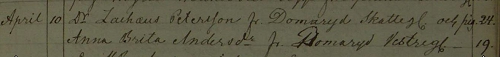 April 10 Dr. Zachaus Peterson fr. Domaryd Skatteg. och pig. 24.
Anna Brita Andersdr fr Domaryd Westreg. 19.